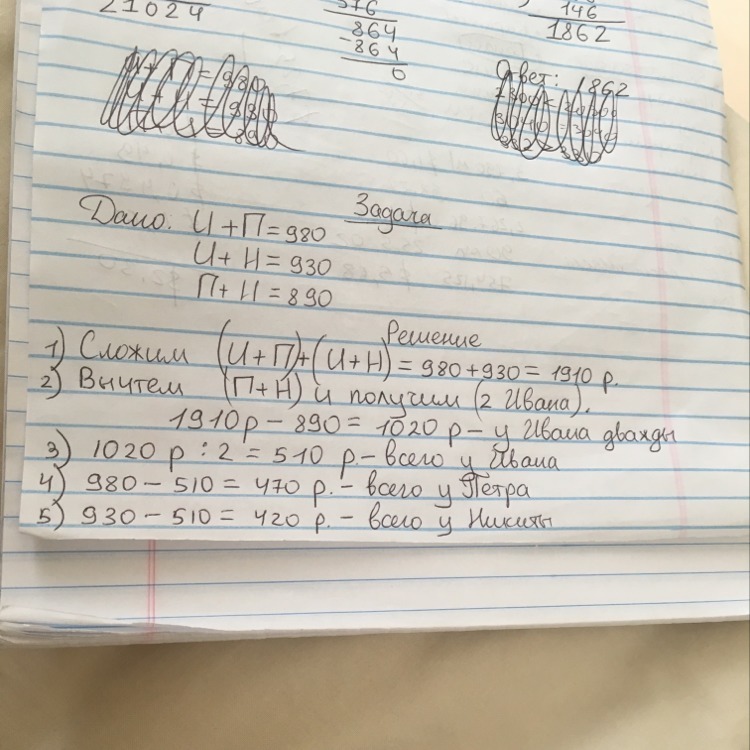 21024
576
864
-864
0
146
1862
Ответ: 1862
Задача
Дано: И+П=980
И+Н=930
П+Н=890
Решение
1) Сложим (И+П)+(И+Н)=980+930=1910 р.
2) Вычтем (П+Н) и получим (2 Ивана).
1910р-890=1020 р-у Ивана дважды
3) 1020 р:2=510 р.-всего у Ивана
4) 980-510=470 р.-всего у Петра
5) 930-510=420 р.-всего у Никиты